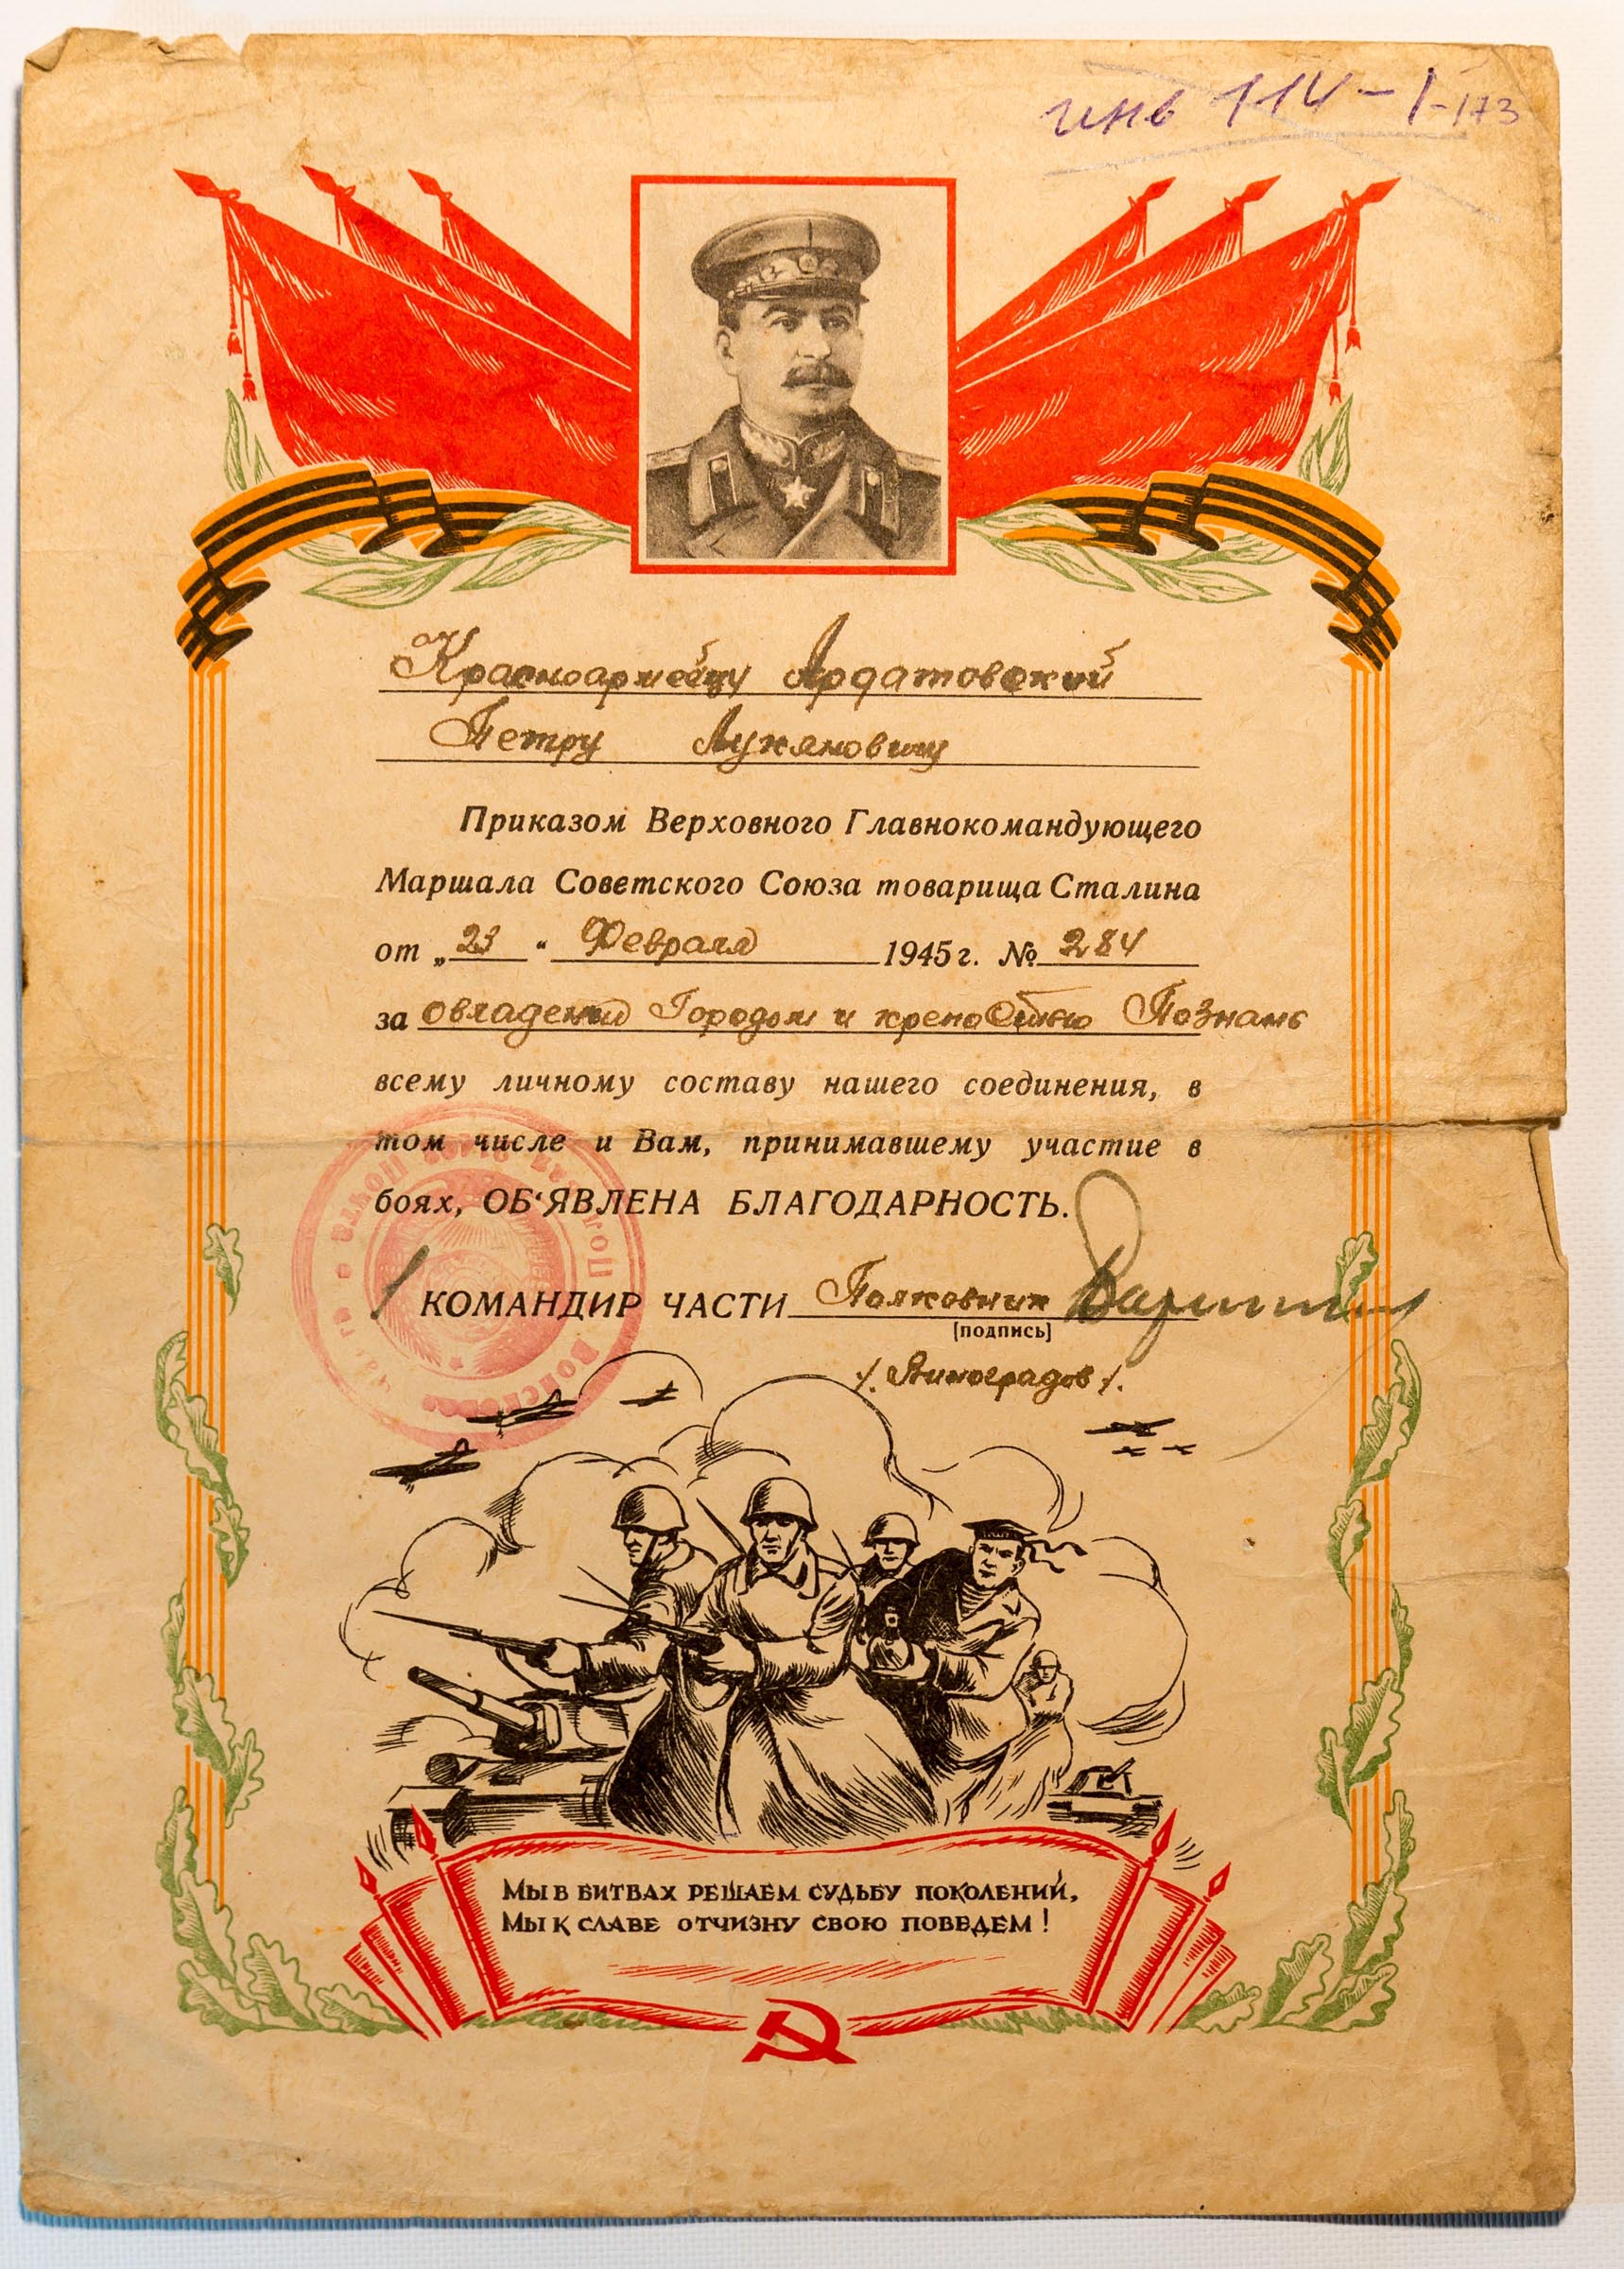 инв 114-1-173
Красноармейцу Ардатовский
Петру Лукяновичу
Приказом Верховного Главнокомандующего
Маршала Советского Союза товарища Сталина
от „23“ Февраля 1945 г. № 284
за овладений Городом и крепостью Познань
всему личному составу нашего соединения, в
том числе и Вам, принимавшему участие в
боях, ОБ‘ЯВЛЕНА БЛАГОДАРНОСТЬ.
КОМАНДИР ЧАСТИ Полковник
(подпись)
/. Виноградов /.
МЫ В БИТВАХ РЕШАЕМ СУДЬБУ ПОКОЛЕНИЙ,
МЫ К СЛАВЕ ОТЧИЗНУ СВОЮ ПОВЕДЕМ!